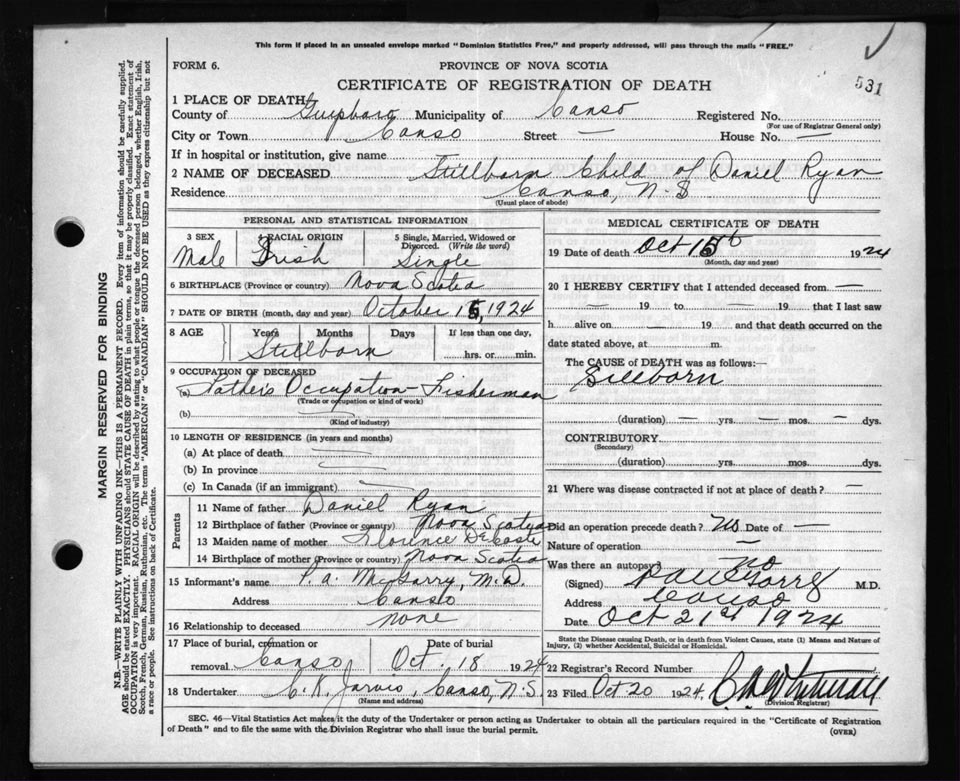 This form if placed in an unsealed envelope marked "Dominion Statistics Free," and properly addressed, will pass through the mails "FREE."
FORM 6.
PROVINCE OF NOVA SCOTIA
CERTIFICATE OF REGISTRATION OF DEATH
531
1 PLACE OF DEATH
County of Guysboro Municipality of Canso Registered No.
(For use of Registrar General only)
City or Town Canso Street — House No. —
If in hospital or institution, give name
2 NAME OF DECEASED Stillborn Child of Daniel Ryan
Residence Canso, N.S
(Usual place of abode)
PERSONAL AND STATISTICAL INFORMATION
3 SEX Male
4 RACIAL ORIGIN Irish
5 Single, Married, Widowed or Divorced. (Write the word) Single
6 BIRTHPLACE (Province or country) Nova Scotia
7 DATE OF BIRTH (month, day and year) October 15, 1924
8 AGE Years Months Days If less than one day,
Stillborn hrs. or min.
9 OCCUPATION OF DECEASED
(a) Father's Occupation - Fisherman
(Trade or occupation or kind of work)
(b) —
(Kind of industry)
10 LENGTH OF RESIDENCE (in years and months)
(a) At place of death —
(b) In province —
(c) In Canada (if an immigrant) —
Parents
11 Name of father Daniel Ryan
12 Birthplace of father (Province or country) Nova Scotia
13 Maiden name of mother Florence DeCoste
14 Birthplace of mother (Province or country) Nova Scotia
15 Informant's name P. A. McGarry, M.D.
Address Canso
16 Relationship to deceased none
17 Place of burial, cremation or removal. Canso Date of burial Oct. 18 1924
18 Undertaker C. K. Jarvis, Canso, N.S.
(Name and address)
MEDICAL CERTIFICATE OF DEATH
19 Date of death Oct 15th 1924
(Month, day and year)
20 I HEREBY CERTIFY that I attended deceased from —
— 19 — to — 19 — that I last saw
h alive on — 19 — and that death occurred on the
date stated above, at m.
The CAUSE of DEATH was as follows:—
Stillborn
(duration) — yrs. — mos. — dys.
CONTRIBUTORY
(Secondary)
(duration) — yrs. — mos. — dys.
21 Where was disease contracted if not at place of death? —
Did an operation precede death? No Date of —
Nature of operation —
Was there an autopsy? No
(Signed) M.D.
Address Canso
Date Oct 21st 1924
State the Disease causing Death, or in death from Violent Causes, state (1) Means and Nature of
Injury, (2) whether Accidental, Suicidal or Homicidal.
22 Registrar's Record Number
23 Filed Oct 20 1924,
(Division Registrar)
SEC. 46—Vital Statistics Act makes it the duty of the Undertaker or person acting as Undertaker to obtain all the particulars required in the "Certificate of Registration
of Death" and to file the same with the Division Registrar who shall issue the burial permit.
(OVER)
MARGIN RESERVED FOR BINDING
N.B.—WRITE PLAINLY WITH UNFADING INK—THIS IS A PERMANENT RECORD. Every item of information should be carefully supplied.
AGE should be stated EXACTLY. PHYSICIANS should STATE CAUSE OF DEATH in plain terms, so that it may be properly classified. Exact statement of
OCCUPATION is very important. RACIAL ORIGIN will be described by stating to what people or tongue the deceased person belonged, whether English, Irish,
Scotch, French, German, Russian, Ruthenian, etc. The terms "AMERICAN" or "CANADIAN" SHOULD NOT BE USED as they express citizenship but not
a race or people. See instructions on back of Certificate.